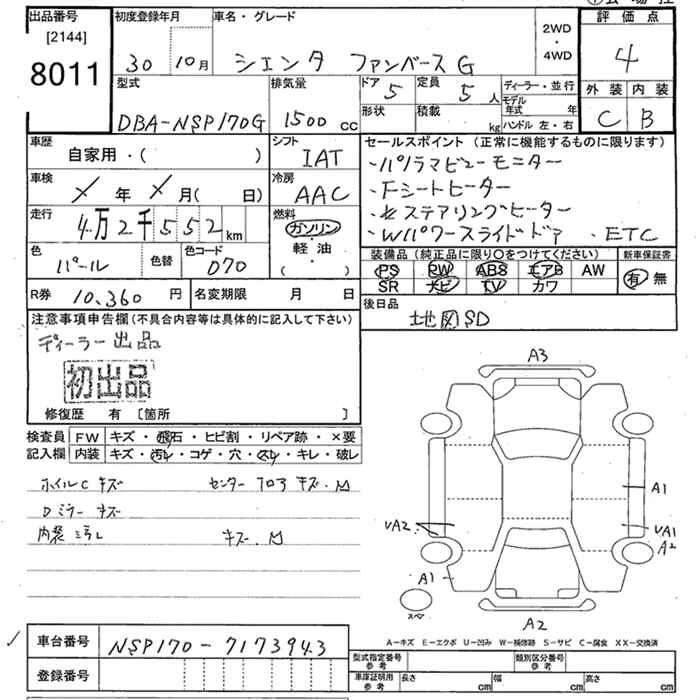 出品番号 初度登録年月 車名・グレード 評価点
[2144] 30 10月 シエンタ ファンベースG 2WD・4WD 4
8011
型式 排気量 ドア 定員 ディーラー・並行 外装 内装
DBA-NSP170G 1500cc 5 5人 モデル年式 年 C B
形状 積載 kg ハンドル 左・右
車歴 シフト セールスポイント (正常に機能するものに限ります)
自家用・( ) IAT ・パノラマビューモニター
車検 冷房 ・Fシートヒーター
X年 X月( 日) AAC ・ステアリングヒーター
走行 燃料 ・Wパワースライドドア・ETC
4万2千552km ガソリン・軽油・( )
色 色替 色コード 装備品 (純正品に限り○をつけてください) 新車保証書
パール 070 PS PW ABS エアB AW 有 無
SR ナビ TV カワ
R券 10,360円 名変期限 月 日 後日品
地図SD
注意事項申告欄 (不具合内容等は具体的に記入して下さい)
ディーラー出品
初出品
修復歴 有 [箇所 ]
検査員 FW キズ・飛石・ヒビ割・リペア跡・×要
記入欄 内装 キズ・汚レ・コゲ・穴・スレ・キレ・破レ
ホイルC キズ センターフロア キズ.M
Dミラー キズ
内装 汚レ キズ.M
A3
A1
VA2
VA1
A2
A1
スペア
A2
A-キズ E-エクボ U-凹み W-補修跡 S-サビ C-腐食 XX-交換済
車台番号 NSP170-7173943
登録番号
型式指定番号 参考 類別区分番号 参考
車庫証明用 参考 長さ cm 幅 cm 高さ cm